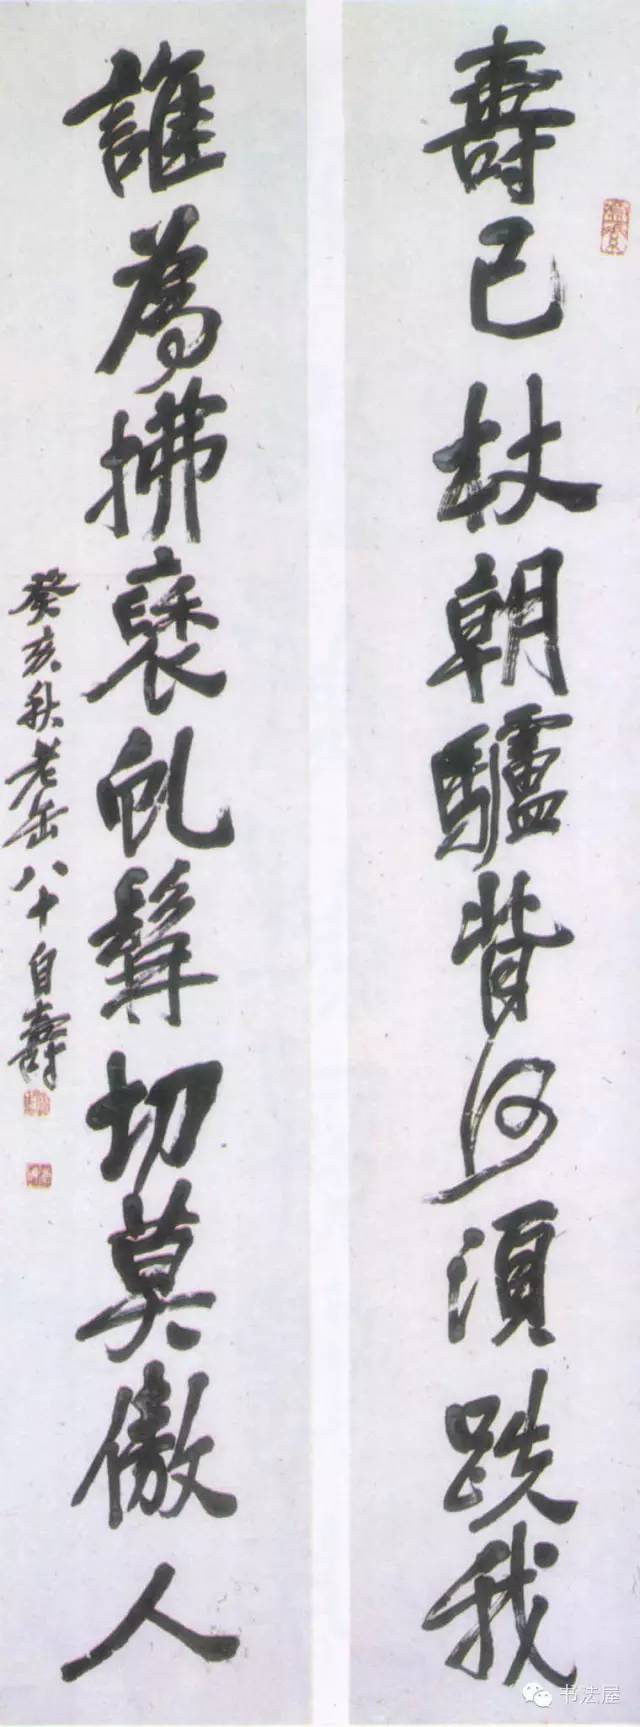 壽已杖朝驢背何須跌我
誰為拂褎虬髯切莫傲人
癸亥秋老缶八十自壽
书法屋